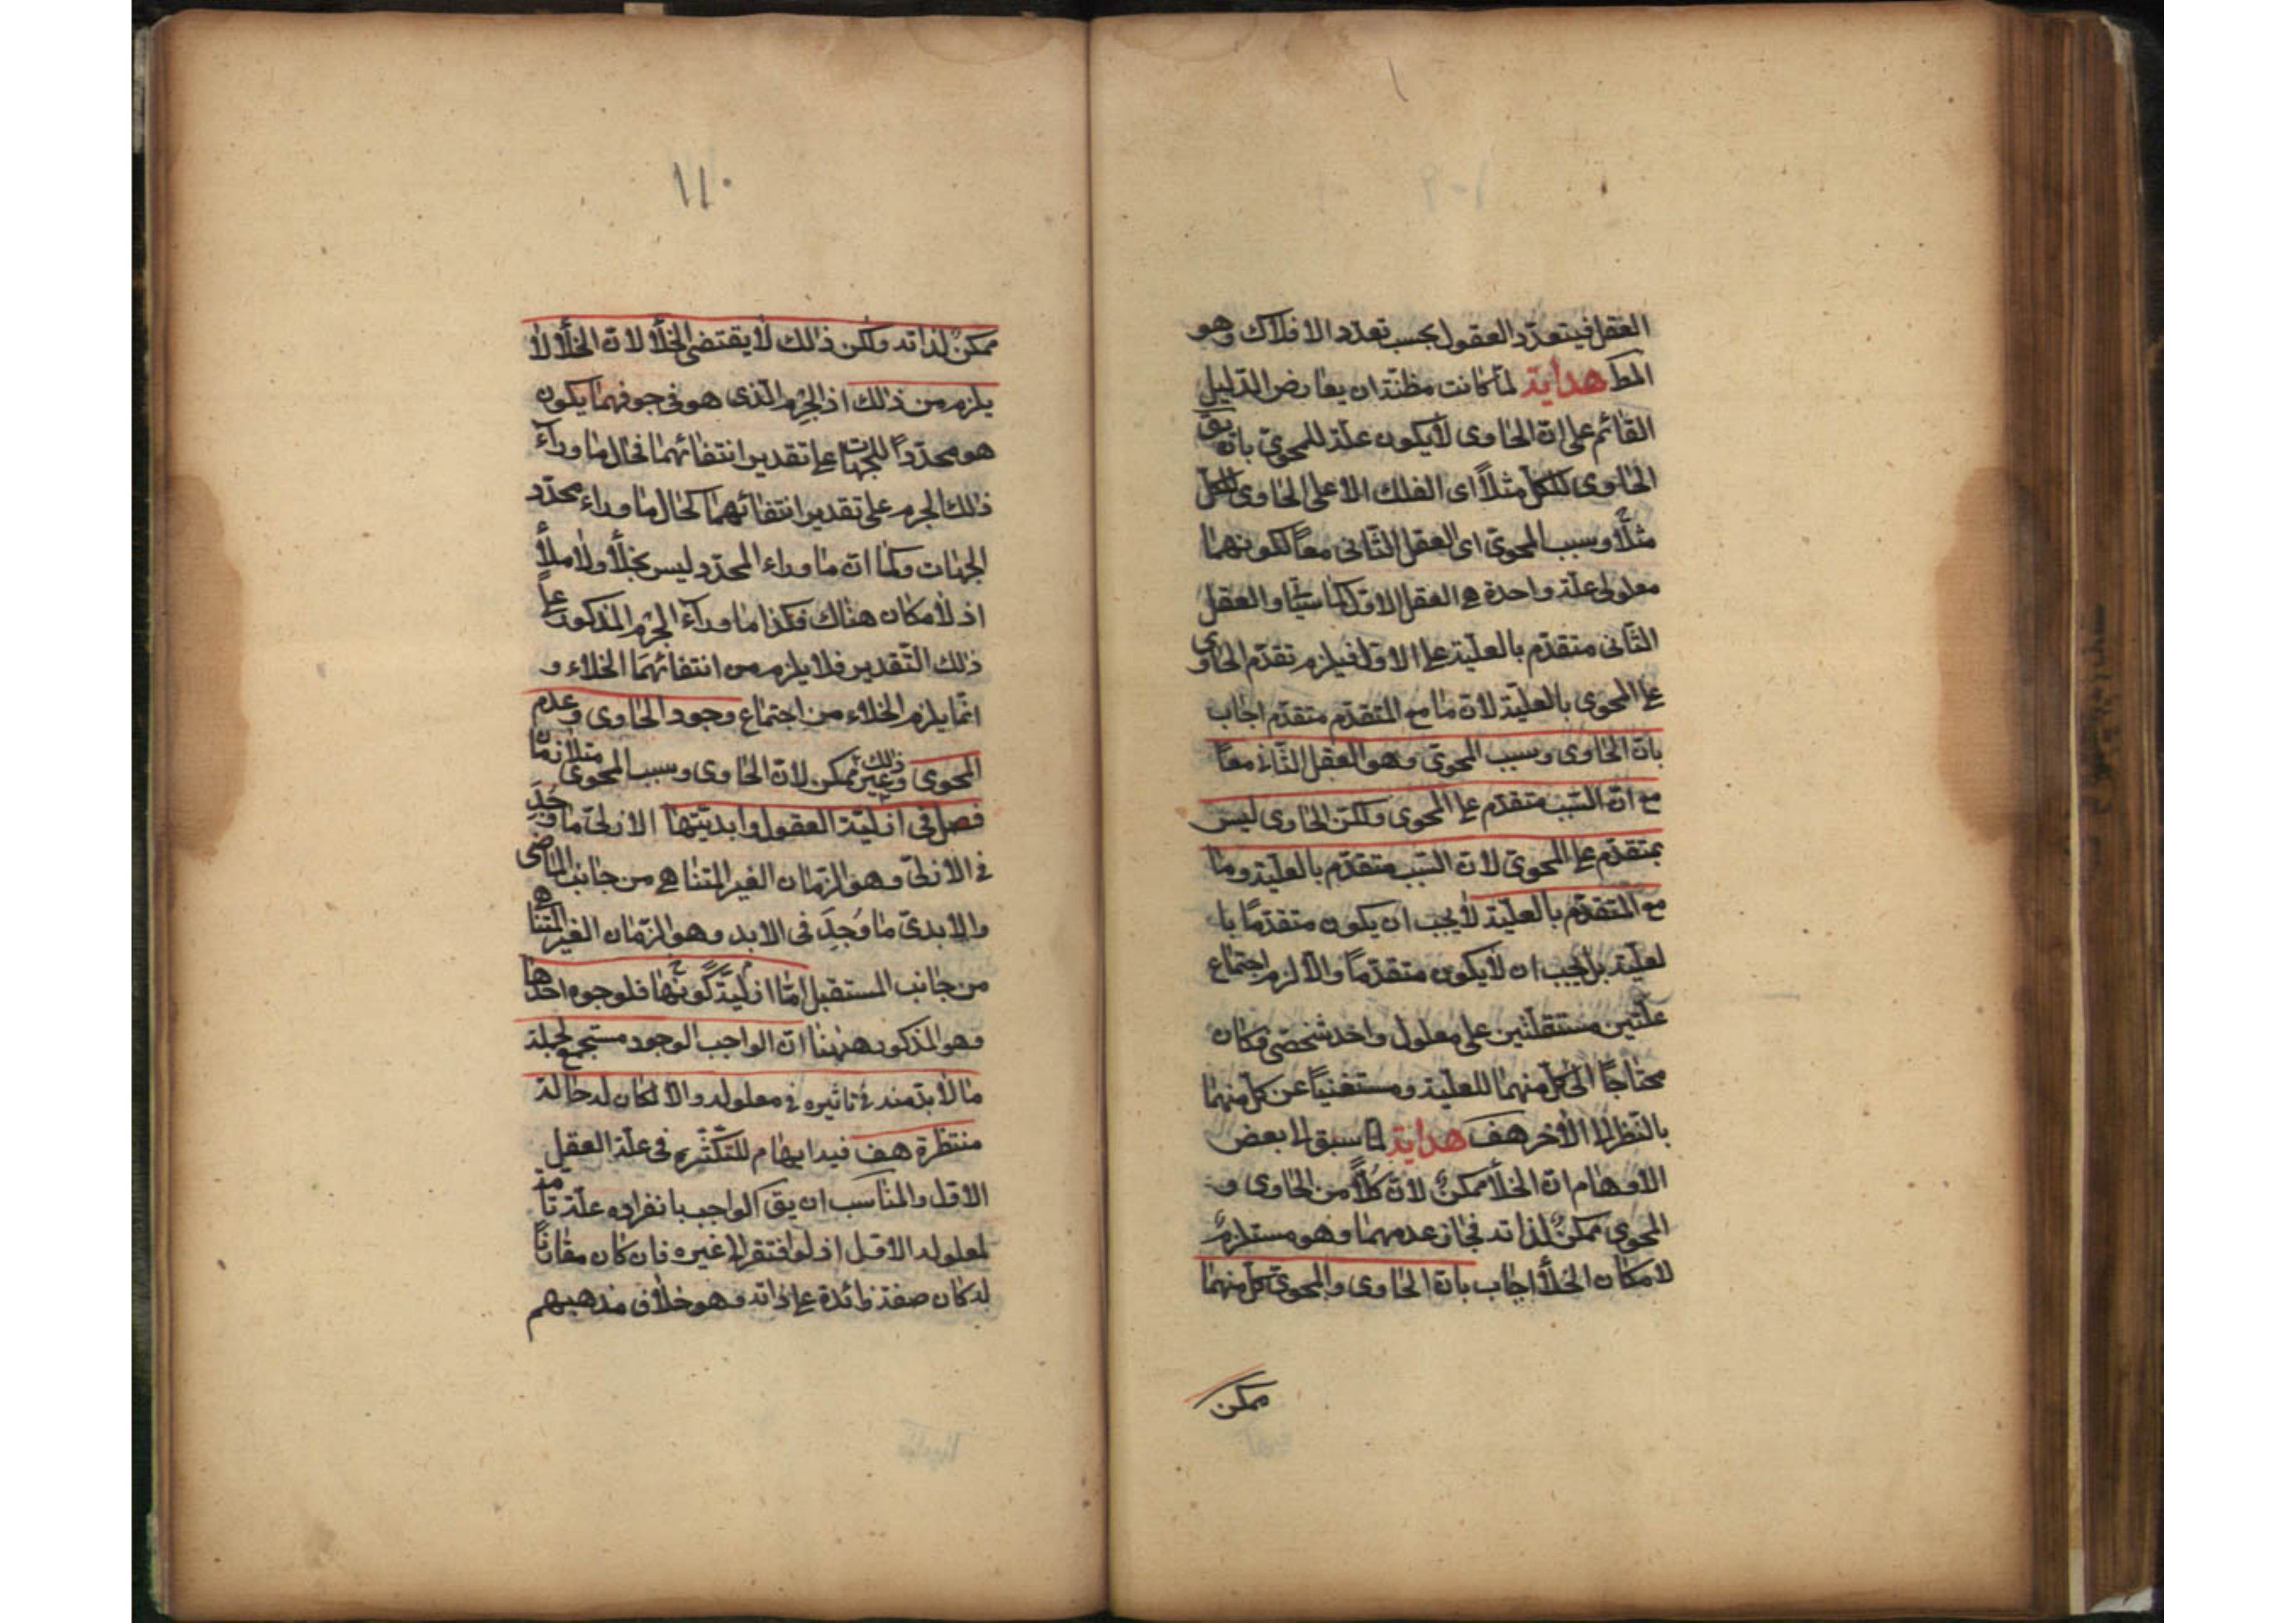 العقل فيتعدّد العقول بحسب تعدّد الافلاك وهو
المط هداية لمّا كانت مظنّة ان يعارض الدّليل
القائم على انّ الحاوى لا يكون علّة للمحوىّ بانّه يق
الحاوى للكلّ مثلاً اى الفلك الاعلى الحاوى للكلّ
مثلاً وسبب المحوىّ اى العقل الثّانى معاً لكونهما
معلولى علّة واحدة هى العقل الاوّل كما سبق والعقل
الثّانى متقدّم بالعليّة على الاوّل فيلزم تقدّم الحاوى
على المحوى بالعليّة لانّ ما مع المتقدّم متقدّم اجاب
بانّ الحاوى وسبب المحوىّ وهو العقل الثّانى معاً
مع انّ السّبب متقدّم على المحوى ولكنّ الحاوى ليس
بمتقدّم على المحوىّ لانّ السّبب متقدّم بالعليّة وما
مع المتقدّم بالعليّة لا يجب ان يكون متقدّمًا با
لعليّة بل يجب ان لا يكون متقدّماً والّا لزم اجتماع
علّتين مستقلّتين على معلول واحد شخصىّ فكان
محتاجًا الى كلّ منهما للعليّة ومستغنياً عن كلّ منهما
بالنّظر الى الآخر هف هداية لما سبق الى بعض
الاوهام انّ الخلأ ممكنٌ لانّ كلاًّ من الحاوى و
المحوى ممكنٌ لذاته فجاز عدمهما وهو مستلزمٌ
لامكان الخلأ اجاب بانّ الحاوى والمحوىّ كلّ منهما
ممكن
١١٠
ممكنٌ لذاته ولكن ذلك لا يقتضى الخلأ لانّ الخلأ لا
يلزم من ذلك اذ الجرم الّذى هو فى جوفهما يكون
هو محدّداً للجهات على تقدير انتفائهما فحال ما وراء
ذلك الجرم على تقدير انتفائهما كحال ما وراء محدّد
الجهات وكما انّ ما وراء المحدّد ليس بخلأ ولا ملأ
اذ لا مكان هناك فكذا ما وراء الجرم المذكور على
ذلك التّقدير فلا يلزم من انتفائهما الخلاء و
انّما يلزم الخلاء من اجتماع وجود الحاوى وعدم
المحوى وذلك غير ممكن لانّ الحاوى وسبب المحوى متلازمان
فصل فى ازليّة العقول وابديّتها الازلىّ ما وُجِدَ
فى الازل وهو الزّمان الغير المتناهى من جانب الماضى
والابدىّ ما وُجِدَ فى الابد وهو الزّمان الغير المتناهى
من جانب المستقبل امّا ازليّة كونها فلوجوه احدها
وهو المذكور ههنا انّ الواجب الوجود مستجمع لجملة
ما لا بدّ منه فى تاثيره فى معلوله والا لكان له حالة
منتظرة هف فيه ايهام للتّكثّر فى علّة العقل
الاوّل والمناسب ان يق الواجب بانفراده علّة تامّة
لمعلوله الاوّل اذ لو افتقر الى غيره فان كان مقارناً
له كان صفة زائدة على ذاته وهو خلاف مذهبهم